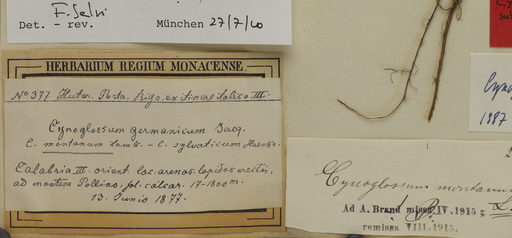 F. Selvi
Det. - rev. München 27/7/00
HERBARIUM REGIUM MONACENSE
No 377. Huter. Porta. Rigo. ex itinere italico III.
Cynoglossum germanicum Jacq.
C. montanum Lamk. - C. sylvaticum Haenke.
Calabria III. orient. loc. arenos. lapidos. erectis,
ad montem Pollino, sol. calcar. 17-1800 m.
13. Junio 1877.
Cynog
1887
Cynoglossum montanum
Ad A. Brand missa IV. 1915
remissa VIII. 1915.